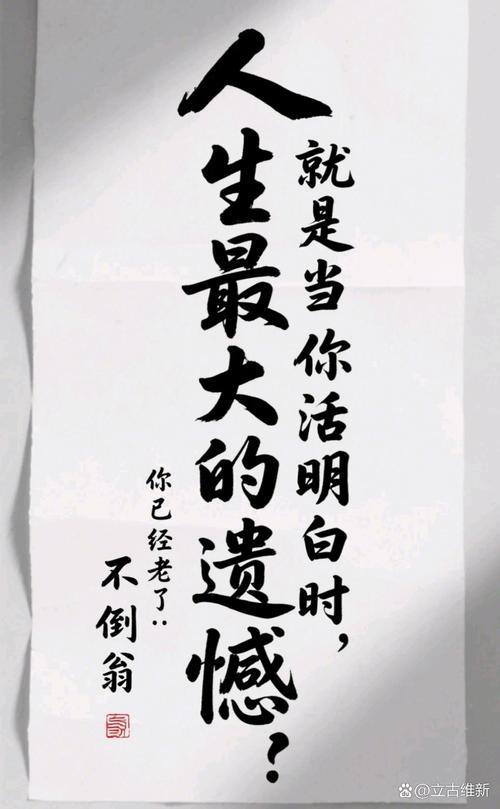 人生最大的遗憾？
就是当你活明白时，
你已经老了：
不倒翁
@立古维新